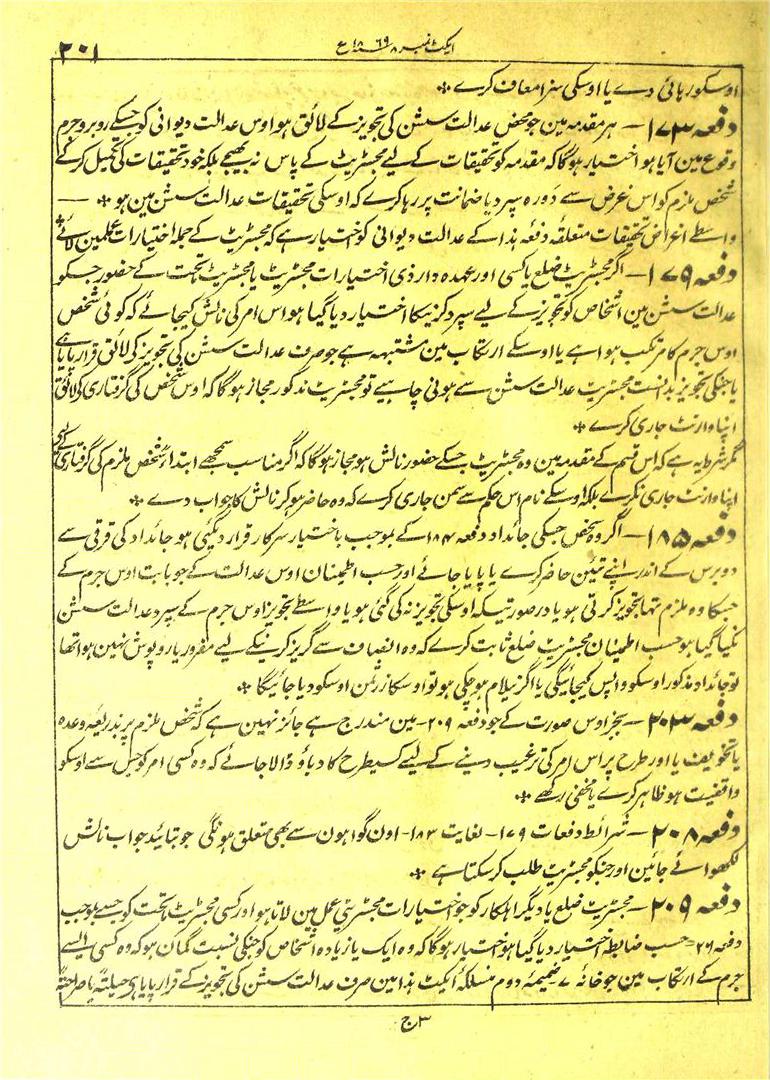 ایکٹ نمبر ۸ ۱۸۶۹ ع
۲۰۱
اوسکو رہائی دے یا اوسکی سزا معاف کرے *
دفعہ ۱۷۳ — ہر مقدمہ مین جو محض عدالت سشن کی تجویز کے لائق ہو اوس عدالت دیوانی کو جسکے روبرو جرم
وقوع مین آیا ہو اختیار ہوگا کہ مقدمہ کو تحقیقات کے لیے مجسٹریٹ کے پاس نہ بھیجے بلکہ خود تحقیقات کی تکمیل کرکے
شخص ملزم کو اس غرض سے دورہ سپرد یا ضمانت پر رہا کرے کہ اوسکی تحقیقات عدالت سشن مین ہو * —
واسطے اغراض تحقیقات متعلقہ دفعہ ہذا کے عدالت دیوانی کو اختیار ہے کہ مجسٹریٹ کے جملہ اختیارات عملمین لائے *
دفعہ ۱۷۹ — اگر مجسٹریٹ ضلع یا کسی اور عہدہ دار ذی اختیارات مجسٹریٹ یا مجسٹریٹ ماتحت کے حضور جسکو
عدالت سشن مین اشخاص کو تجویز کے لیے سپرد کرنیکا اختیار دیا گیا ہو اس امر کی نالش کیجائے کہ کوئی شخص
اوس جرم کا مرتکب ہوا ہے یا اوسکے ارتکاب مین مشتبہ ہے جو صرف عدالت سشن کی تجویز کی لائق قرار پایا ہے
یا جسکی تجویز بدانست مجسٹریٹ عدالت سشن سے ہونی چاہیے تو مجسٹریٹ مذکور مجاز ہوگا کہ اوس شخص کی گرفتاری کی لائق
اپنا وارنٹ جاری کرے *
مگر شرط یہ ہے کہ اس قسم کے مقدمہ مین وہ مجسٹریٹ جسکے حضور نالش ہو مجاز ہوگا کہ اگر مناسب سمجھے ابتداً شخص ملزم کی گرفتاری کیلیے
اپنا وارنٹ جاری نکرے بلکہ اوسکے نام اس حکم سے سمن جاری کرے کہ وہ حاضر ہو کر نالش کا جواب دے *
دفعہ ۱۸۵ — اگر وہ شخص جسکی جائداد دفعہ ۱۸۴ کے بموجب باختیار سرکار قرار دیگئی ہو جائداد کی قرقی سے
دو برس کے اندر اپنے تئین حاضر کرے یا پایا جائے اور حسب اطمینان اوس عدالت کے جو بابت اوس جرم کے
جسکا وہ ملزم تھا تجویز کرتی ہو یا درصورتیکہ اوسکی تجویز نہ کی گئی ہو یا واسطے تجویز اوس جرم کے سپرد عدالت سشن
نکیا گیا ہو حسب اطمینان مجسٹریٹ ضلع ثابت کرے کہ وہ انصاف سے گریز کرنیکے لیے مفرور یا روپوش نہین ہوا تھا
تو جائداد مذکور اوسکو واپس کیجائیگی یا اگر نیلام ہو چکی ہو تو اوسکا زرثمن اوسکو دیا جائیگا *
دفعہ ۲۰۳ — بجز اوس صورت کے جو دفعہ ۲۰۹ مین مندرج ہے جائز نہین ہے کہ شخص ملزم پر بذریعہ وعدہ
یا تخویف یا اور طرح پر اس امر کی ترغیب دینے کے لیے کسیطرح کا دباؤ ڈالا جائے کہ وہ کسی امر کو جس سے اوسکو
واقفیت ہو ظاہر کرے یا مخفی رکھے *
دفعہ ۲۰۸ — شرائط دفعات ۱۷۹ لغایت ۱۸۳ اون گواہون سے بھی متعلق ہونگی جو بتائید جواب نالش
لکھوائے جائین اور جنکو مجسٹریٹ طلب کر سکتا ہے *
دفعہ ۲۰۹ — مجسٹریٹ ضلع یا دیگر اہلکار کو جو اختیارات مجسٹریٹی عمل مین لاتا ہو اور کسی مجسٹریٹ ماتحت کو جسے بموجب
دفعہ ۲۶ حسب ضابطہ اختیار دیا گیا ہو اختیار ہوگا کہ وہ ایک یا زیادہ اشخاص کو جنکی نسبت گمان ہو کہ وہ کسی ایسے
جرم کے ارتکاب مین جو خانہ ۷ ضمیمہ دوم منسلکہ ایکٹ ہذا مین صرف عدالت سشن کی تجویز کے قرار پایا ہو حیلتہً یا صراحتہً
ج ۳